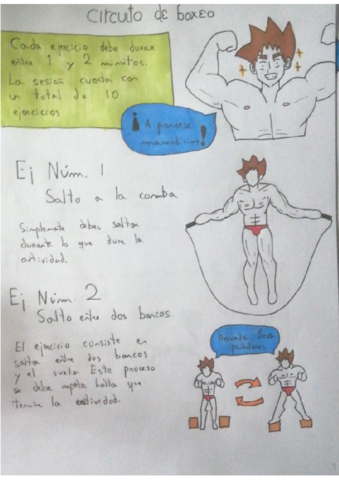 Circuto de boxeo
Cada ejercicio debe durar
entre 1 y 2 minutos.
La sesión cuenta con
un total de 10
ejercicios
¡A ponerse
mamadísimo!
Ej Núm. 1
Salto a la comba
Simplemente debes saltar
durante lo que dure la
actividad.
Ej Núm. 2
Salto entre dos bancos
El ejercicio consiste en
saltar entre dos bancos
y el suelo. Este proceso
se debe repetir hasta que
termine la actividad.